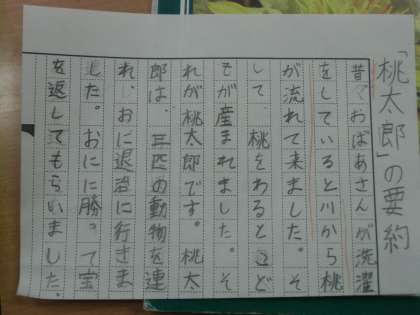 「桃太郎」の要約
昔、おばあさんが洗濯
をしていると川から桃
が流れて来ました。そ
して、桃をわるとこど
もが産まれました。そ
れが桃太郎です。桃太
郎は、三匹の動物を連
れ、おに退治に行きま
した。おにに勝って宝
を返してもらいました。